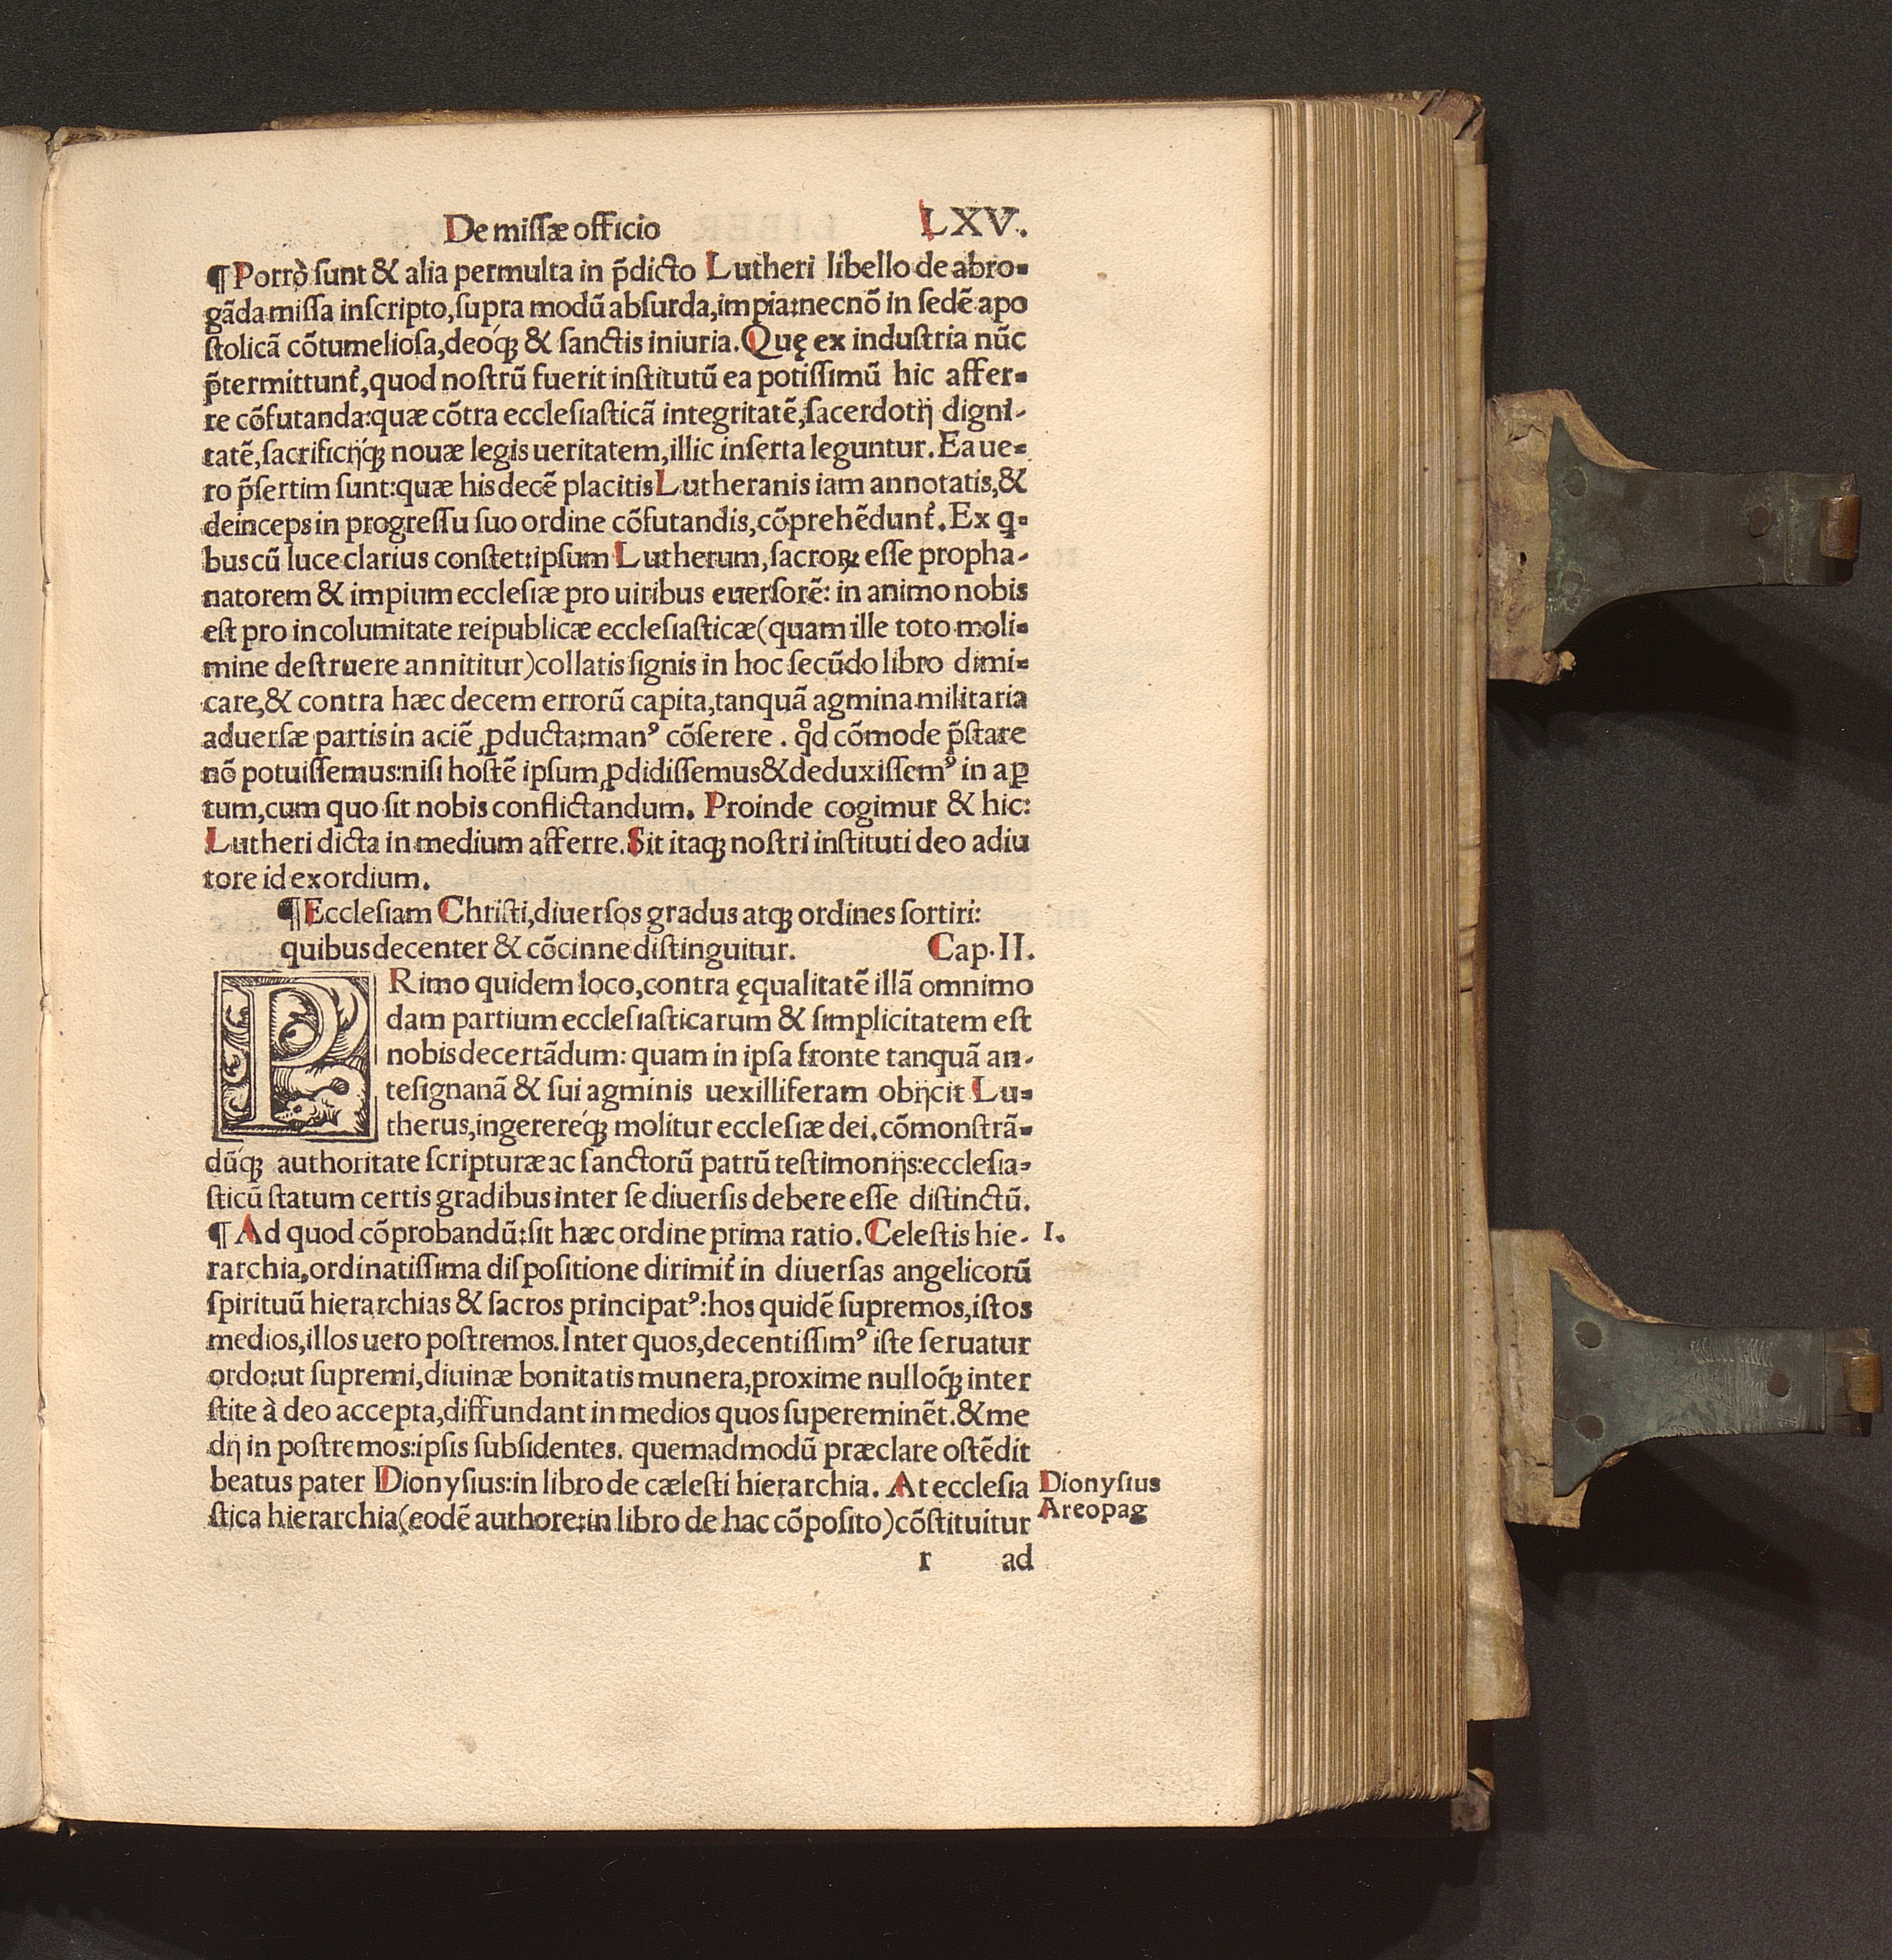 De miſſæ officio LXV.
¶ Porrò ſunt & alia permulta in p̃dicto Lutheri libello de abro-
gãda miſſa inſcripto, ſupra modũ abſurda, impia: necnõ in ſedẽ apo
ſtolicã cõtumelioſa, deóq̃ꝫ & ſanctis iniuria. Quę ex induſtria nũc
p̃termittunt᷑, quod noſtrũ fuerit inſtitutũ ea potiſſimũ hic affer-
re cõfutanda: quæ cõtra eccleſiaſticã integritatẽ, ſacerdotij digni-
tatẽ, ſacrificijq́ꝫ nouæ legis ueritatem, illic inſerta leguntur. Ea ue-
ro p̃ſertim ſunt: quæ his decẽ placitis Lutheranis iam annotatis, &
deinceps in progreſſu ſuo ordine cõfutandis, cõprehẽdunt᷑. Ex q-
bus cũ luce clarius conſtet: ipſum Lutherum, ſacroꝝ eſſe propha-
natorem & impium eccleſiæ pro uiribus euerſorẽ: in animo nobis
eſt pro incolumitate reipublicæ eccleſiaſticæ (quam ille toto moli-
mine deſtruere annititur) collatis ſignis in hoc ſecũdo libro dimi-
care, & contra hæc decem errorũ capita, tanquã agmina militaria
aduerſæ partis in aciẽ ꝓducta: manꝰ cõſerere. qd̾ cõmode p̃ſtare
nõ potuiſſemus: niſi hoſtẽ ipſum ꝓdidiſſemus & deduxiſſemꝰ in aꝑ
tum, cum quo ſit nobis conflictandum. Proinde cogimur & hic:
Lutheri dicta in medium afferre. Sit itaqꝫ noſtri inſtituti deo adiu
tore id exordium.
¶ Eccleſiam Chriſti, diuerſos gradus atqꝫ ordines ſortiri:
quibus decenter & cõcinne diſtinguitur. Cap. II.
PRimo quidem loco, contra ęqualitatẽ illã omnimo
dam partium eccleſiaſticarum & ſimplicitatem eſt
nobis decertãdum: quam in ipſa fronte tanquã an-
teſignanã & ſui agminis uexilliferam obijcit Lu-
therus, ingereréq́ꝫ molitur eccleſiæ dei. cõmonſtrã-
dũq́ꝫ authoritate ſcripturæ ac ſanctorũ patrũ teſtimonijs: eccleſia-
ſticũ ſtatum certis gradibus inter ſe diuerſis debere eſſe diſtinctũ.
¶ Ad quod cõprobandũ: ſit hæc ordine prima ratio. Celeſtis hie- I.
rarchia, ordinatiſſima diſpoſitione dirimit᷑ in diuerſas angelicorũ
ſpirituũ hierarchias & ſacros principatꝰ: hos quidẽ ſupremos, iſtos
medios, illos uero poſtremos. Inter quos, decentiſſimꝰ iſte ſeruatur
ordo: ut ſupremi, diuinæ bonitatis munera, proxime nulloq́ꝫ inter
ſtite à deo accepta, diffundant in medios quos ſupereminẽt. & me
dij in poſtremos: ipſis ſubſidentes. quemadmodũ præclare oſtẽdit
beatus pater Dionyſius: in libro de cæleſti hierarchia. At eccleſia Dionyſius
ſtica hierarchia (eodẽ authore: in libro de hac cõpoſito) cõſtituitur Areopag
r ad